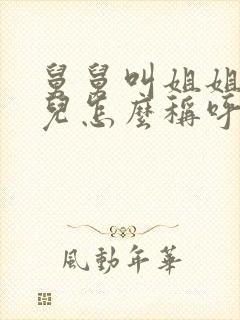 舅舅叫姐姐
兒怎麼稱呼
風動年華